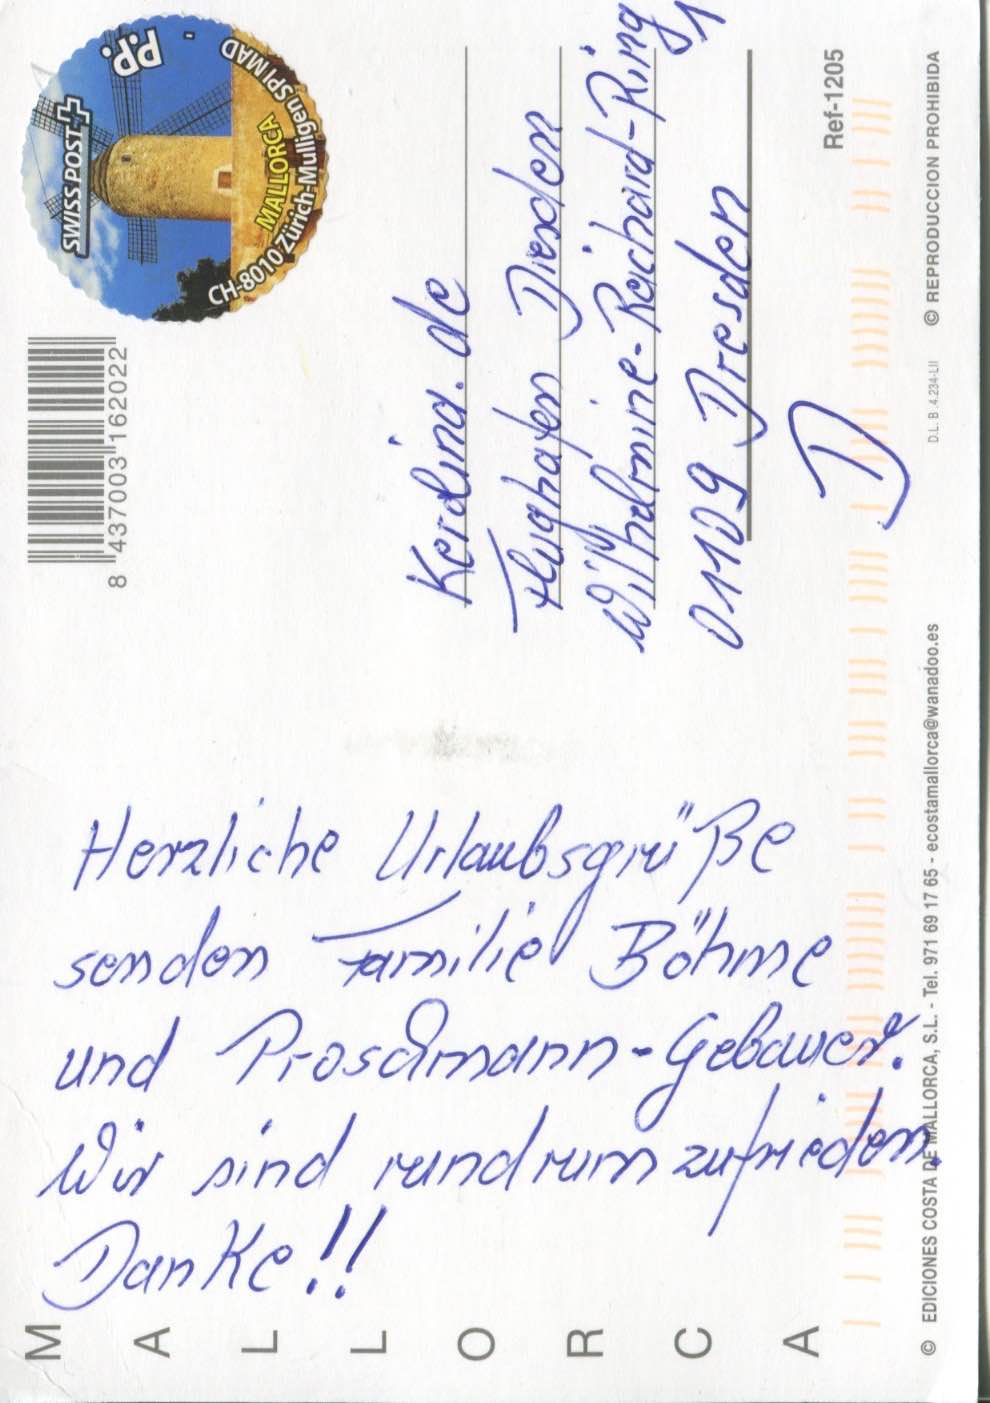 MALLORCA
Herzliche Urlaubsgrüße
senden Familie Böhme
und Proschmann-Gebauer.
Wir sind rundrum zufrieden.
Danke!!
P.P.
SWISS POST
MALLORCA
CH-8010 Zürich-Mülligen SPI MAD
8 437003 162022
Kerolina.de
Flughafen Dresden
Wilhelmine-Reichard-Ring 1
01109 Dresden
D
Ref-1205
© EDICIONES COSTA DE MALLORCA, S.L. - Tel. 971 69 17 65 - ecostamallorca@wanadoo.es
D.L. B. 4.234-LII
© REPRODUCCION PROHIBIDA